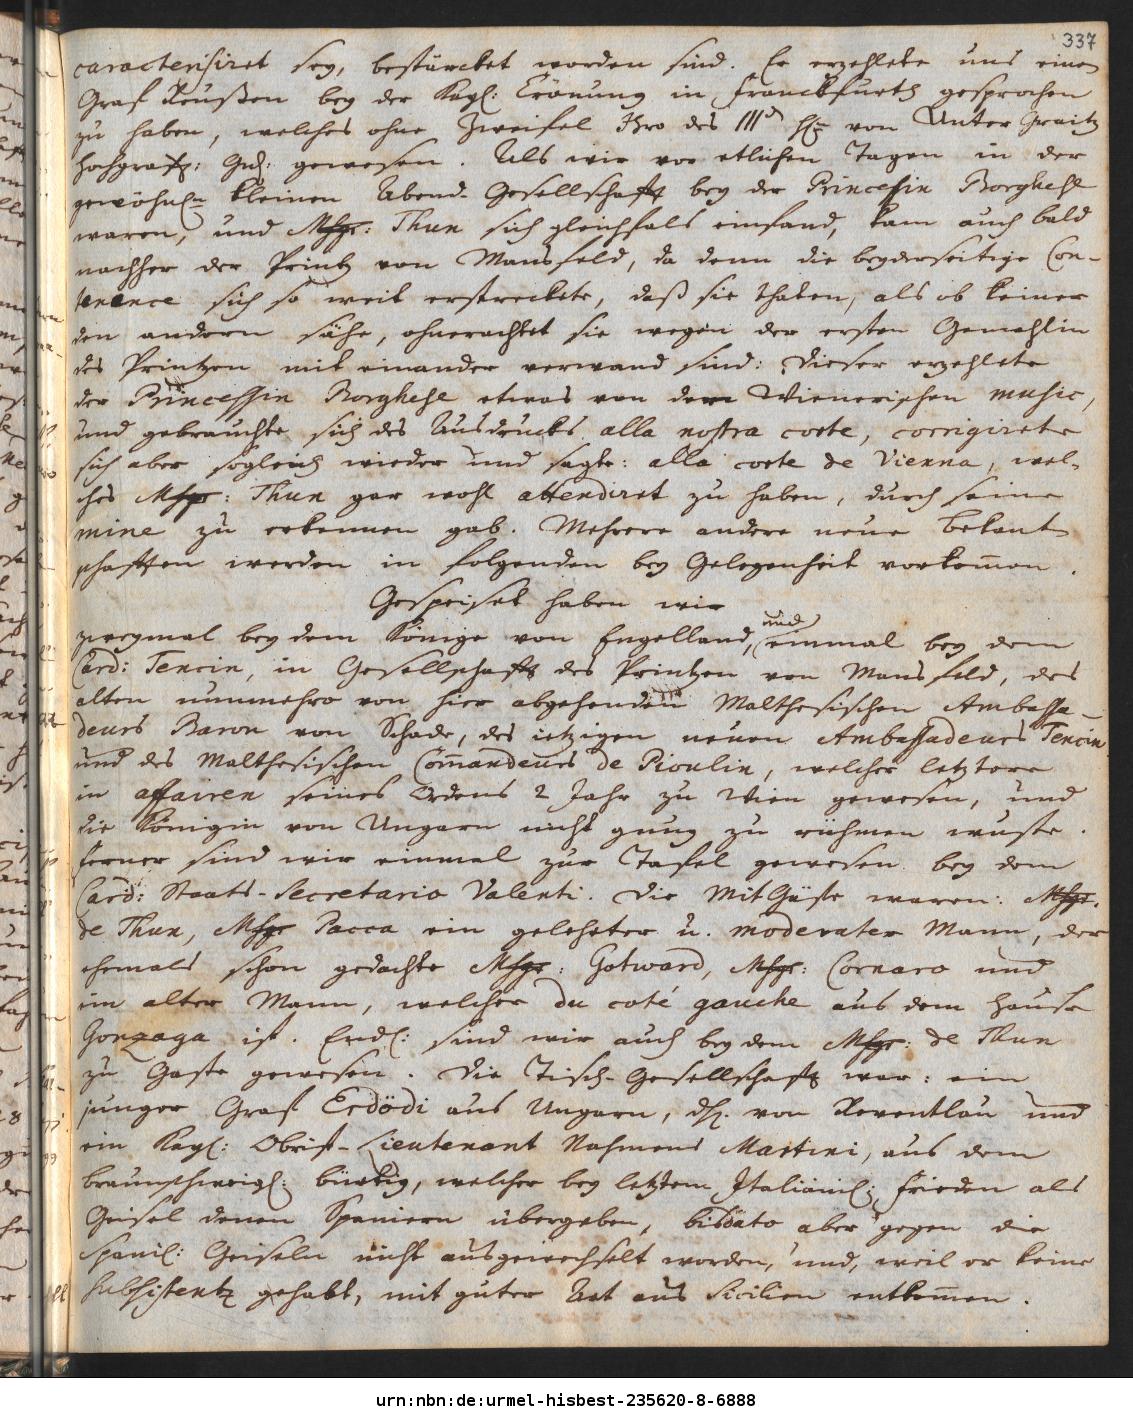 337
caracterisiret sey, bestärcket worden sind. Er erzehlete uns einen
Graf Reußen bey der Kayl: Crönung in Franckfurth gesprochen
zu haben, welches ohne Zweifel Ihro des IIIn H. von Unter Graitz
Hochgräfl: Gnd: gewesen. Als wir vor etlichen Tagen in der
gewöhnln kleinen Abend-Gesellschafft bey der Princessin Borghese
waren, und Msgr: Thun sich gleichfals einfand, kam auch bald
nachher der Printz von Mansfeld, da denn die beyderseitige Con-
tenence sich so weit erstreckete, daß sie thaten, als ob keiner
den andern sähe, ohnerachtet sie wegen der ersten Gemahlin
des Printzen mit einander verwand sind: Dieser erzehlete
der Princessin Borghese etwas von dem Wienerischen music,
und gebrauchte sich des Ausdrucks alla nostra corte, corrigirete
sich aber sogleich wieder und sagte: alla corte de Vienna, wel-
ches Msgr: Thun gar wohl attendiret zu haben, durch seine
mine zu erkennen gab. Mehrere andere neue bekant
schafften werden in folgenden bey Gelegenheit vorkom̄en.
Gespeiset haben wir
zweymal bey dem Könige von Engelland, und einmal bey dem
Card: Tencin, in Gesellschafft des Printzen von Mansfeld, des
alten nunmehro von hier abgehenden Malthesischen Ambassa-
deurs Baron von Schade, des ietzigen neuen Ambassadeurs Tencin
und des Malthesischen Com̄andeurs de Pioulin, welcher letztere
in affairen seines Ordens 2 Jahr zu Wien gewesen, und
die Königin von Ungarn nicht gnug zu rühmen wuste.
Ferner sind wir einmal zur Tafel gewesen bey dem
Card: Staats-Secretario Valenti. Die MitGäste waren: Msgr.
de Thun, Msgr Pacca ein gelehrter u. moderater Mann, der
ehemals schon gedachte Msgr: Gotward, Msgr: Cornaro und
ein alter Mann, welcher du coté gauche aus dem Hause
Gonzaga ist. Endl: sind wir auch bey dem Msgr: de Thun
zu Gaste gewesen. Die Tisch-Gesellschafft war: ein
junger Graf Erdödi aus Ungarn, H. von Reventlau und
ein Kayl: Obrist-Lieutenant Nahmens Martini, aus dem
braunschweigl: bürtig, welcher bey letztem Italiänil: Frieden als
Geisel denen Spaniern übergeben, bisdato aber gegen die
Spanil: Geiseln nicht ausgewechselt worden, und, weil er keine
subsistentz gehabt, mit guter Art aus Sicilien entkom̄en.
urn:nbn:de:urmel-hisbest-235620-8-6888